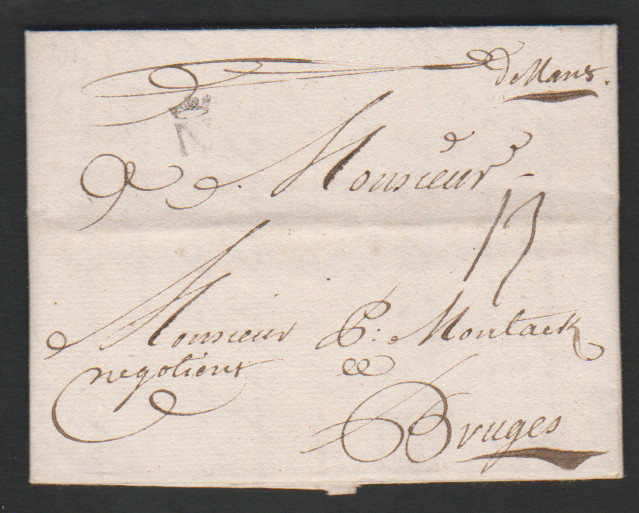 de Mans.
N
A Monsieur
13
Monsieur P: Montack
negotient
a
Bruges